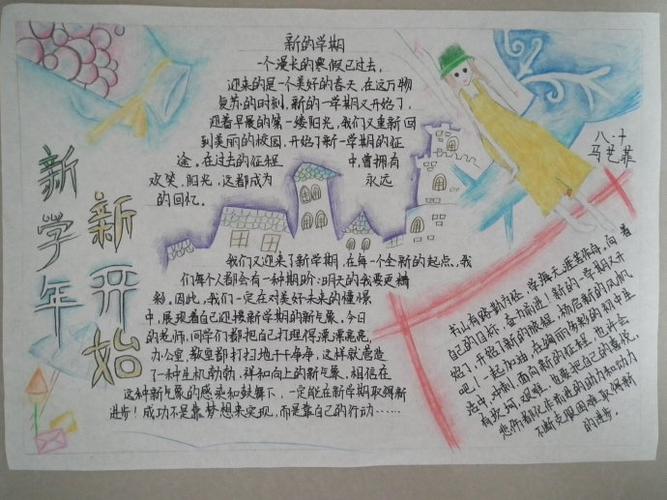 新学年
新开始
新的学期
一个漫长的寒假已过去，
迎来的是一个美好的春天，在这万物
复苏的时刻，新的一学期又开始了，
迎着早晨的第一缕阳光，我们又重新回
到美丽的校园，开始了新一学期的征
途。在过去的征程中，曾拥有
欢笑，阳光，这都成为永远
的回忆。
八·十
马艺菲
我们又迎来了新学期，在每一个全新的起点，我
们每个人都会有一种期盼：明天的我要更精
彩。因此，我们一定在对美好未来的憧憬
中，展现着自己迎接新学期的新气象，今日
的老师，同学们都把自己打理得漂漂亮亮，
办公室，教室都打扫地干干净净，这样就营造
了一种生机勃勃，祥和向上的新气象，相信在
这种新气象的感染和鼓舞下，一定能在新学期取得新
进步！成功不是靠梦想来实现，而是靠自己的行动……
书山有路勤为径，学海无涯苦作舟，向着
自己的目标，奋力前进！新的一学期又开
始了，开始了新的旅程，扬启新的风帆
吧！一起加油，在绚丽缤纷的初中生
活中，冲刺，面向新的征程，也许会
有坎坷，艰难，也要把自己的喜悦，
悲伤都化作前进的助力和动力
不断克服困难取得新
的进步。